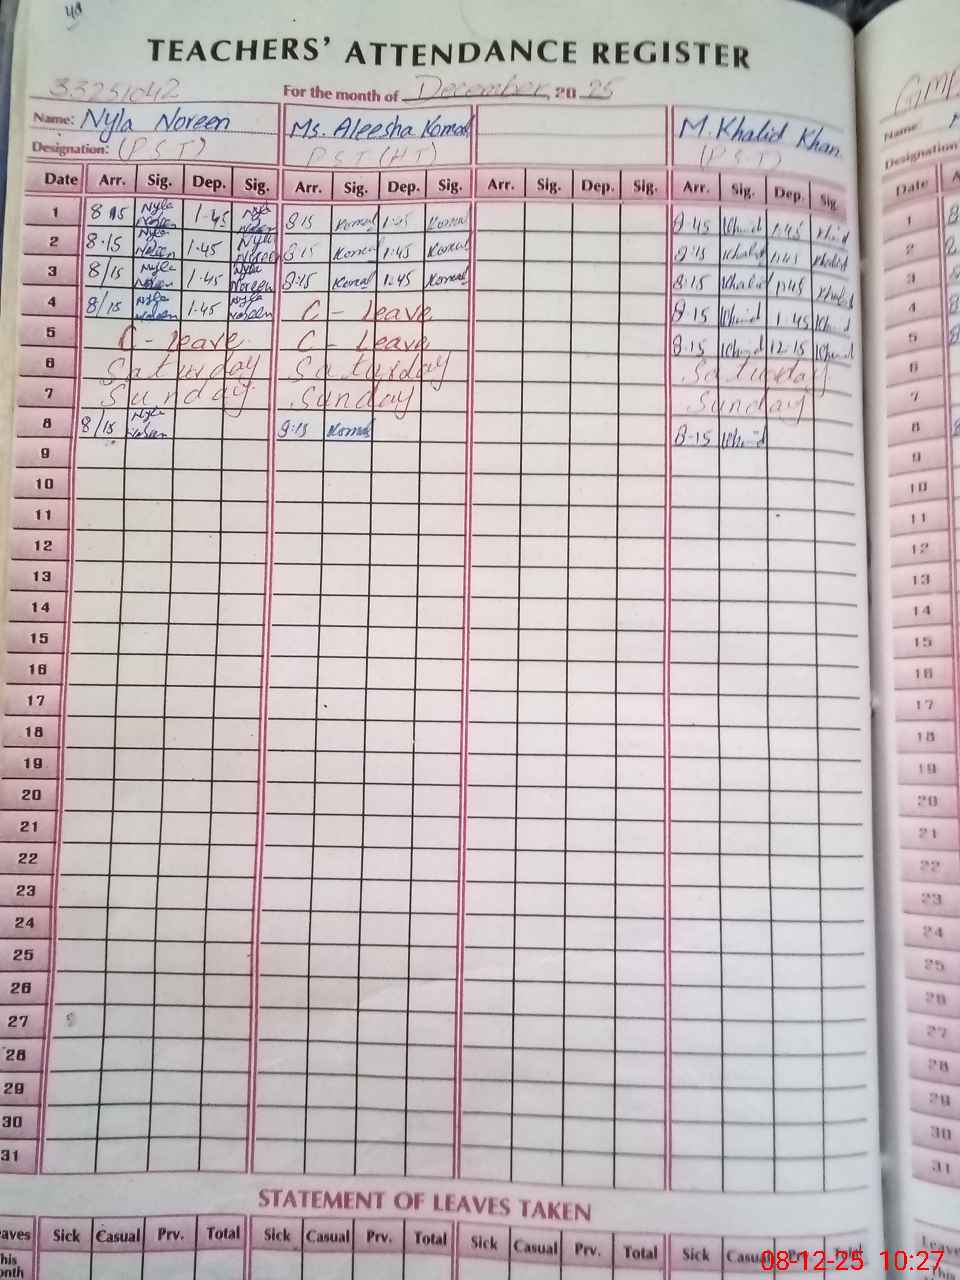 49
TEACHERS' ATTENDANCE REGISTER
33251042 For the month of December 20 25
Name: Nyla Noreen Ms. Aleesha Komal M. Khalid Khan
Designation: (P S T) P S T (H T) (P S T)
Date Arr. Sig. Dep. Sig. Arr. Sig. Dep. Sig. Arr. Sig. Dep. Sig. Arr. Sig. Dep. Sig.
1 8 15 Nyla Noreen 1-45 Nyla Noreen 8·15 Komal 1:45 Komal 8·45 Khalid 1:45 Khalid
2 8·15 Nyla Noreen 1·45 Nyla Noreen 8:15 Komal 1:45 Komal 8:15 Khalid Khalid
3 8/15 Nyla Noreen 1·45 Nyla Noreen 8:15 Komal 1:45 Komal 8·15 Khalid 1:45 Khalid
4 8/15 Nyla Noreen 1·45 Nyla Noreen C - Leave 8·15 1:45
5 C - Leave C - Leave 8·15 12·15
6 Saturday Saturday Saturday
7 Sunday Sunday Sunday
8 8/15 Nyla Noreen 8:15 Komal 8-15
9
10
11
12
13
14
15
16
17
18
19
20
21
22
23
24
25
26
27
28
29
30
31
STATEMENT OF LEAVES TAKEN
eaves Sick Casual Prv. Total Sick Casual Prv. Total Sick Casual Prv. Total Sick Casual
his
onth
Name
Designation
Date
1
2
3
4
5
6
7
8
9
10
11
12
13
14
15
16
17
18
19
20
21
22
23
24
25
26
27
28
29
30
31
Leave
This
08-12-25 10:27